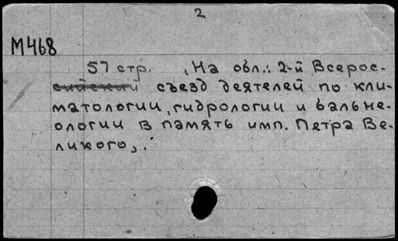 2
М468
57 стр. „На обл.: 2-й Всерос-
сийский съезд деятелей по кли-
матологии, гидрологии и бальне-
ологии в память имп. Петра Ве-
ликого„.